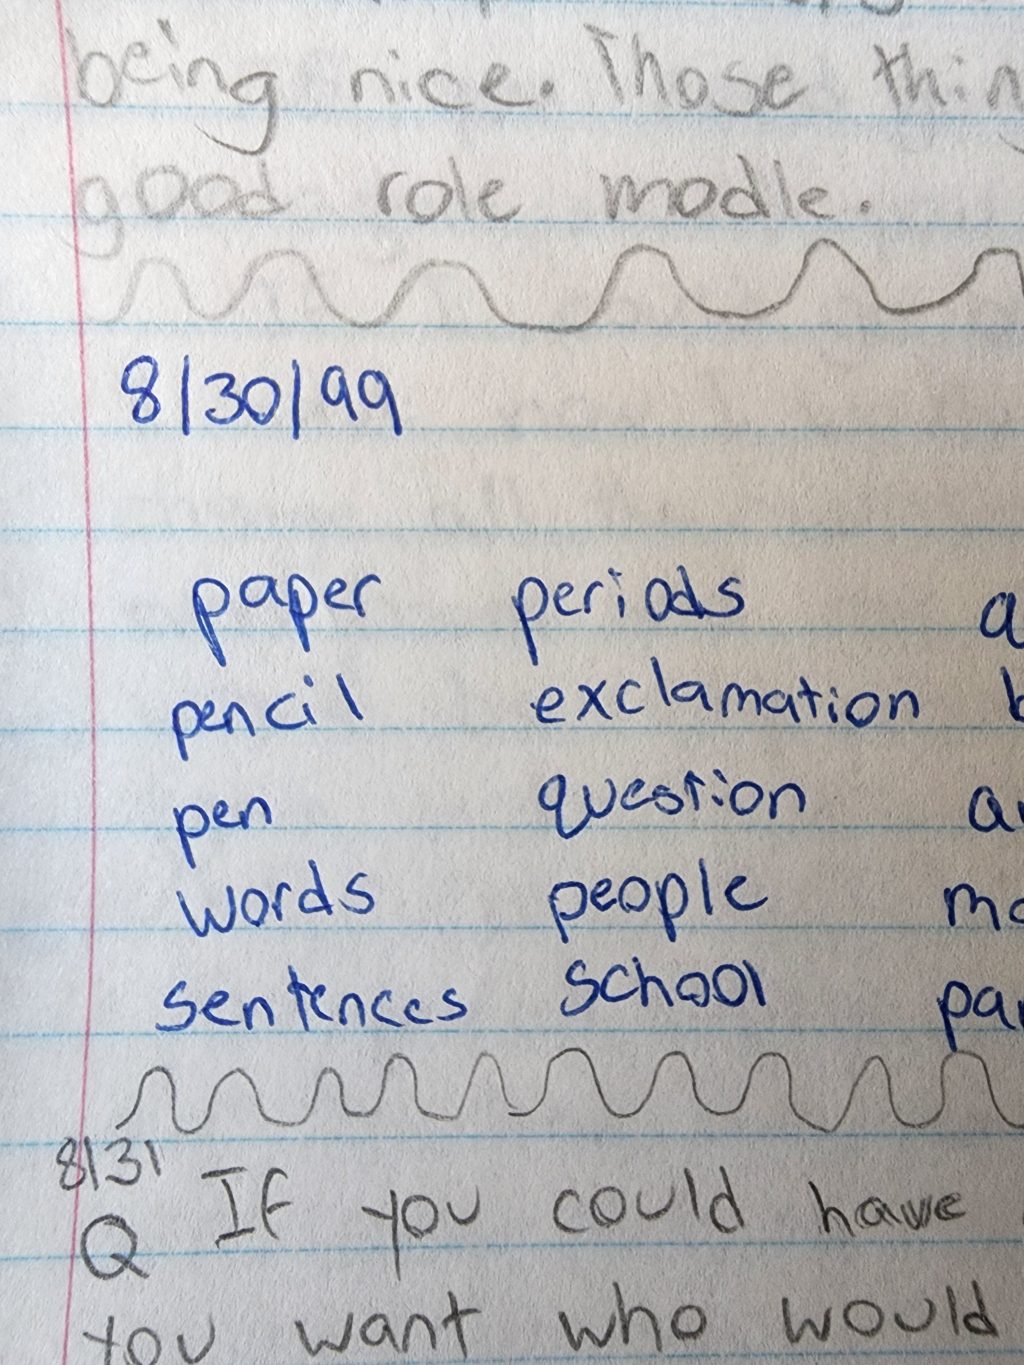 being nice. Those thin
good role modle.
8/30/99
paper periods a
pencil exclamation b
pen question a
words people mo
sentences school par
8/31
Q If you could have
you want who would